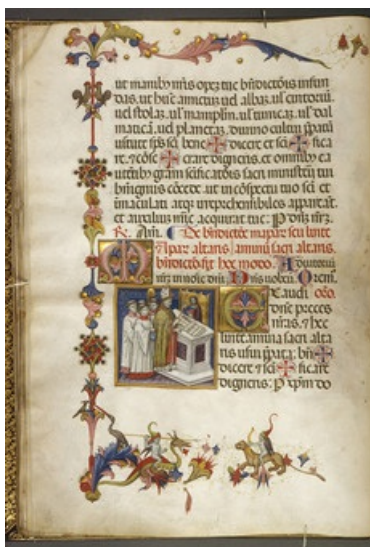 ut manibȝ nr̄is opeȝ tue bn̄dictōis infun
das. ut hūc amictuȝ uel albaȝ. ul' cintoriū.
uel stolaȝ. ul' manipl'm. ul' tunicaȝ. ul' dal
maticā. uel planetaȝ. diuino cultui p̄patū
uirtute sp̄s sc̄i bene ✠ dicere et sc̄i ✠ fica
re. ⁊ cōse ✠ crare digneris. et omnibȝ ea
utētibȝ gram̄ sc̄ificatōis sacri tui
cōcede. ut in cōspectu tuo sc̄i et
inmaculati atqȝ irreprehensibiles appareāt.
et auxiliuȝ mīe acquirāt tue. P dn̄m nr̄m.
R. Am̄. De bn̄dictōe mapar̄ seu linte
altaris. sacri altaris.
bn̄dictō fit hoc modo. Adiutoriū
nr̄m in noīe dn̄i. Dn̄s uobcū. Orem̄.
Exaudi oīo.
dn̄e preces
nr̄as. ⁊ hec
linteamina sacri alta
ris usui p̄parata. bn̄ ✠
dicere ⁊ sc̄i ✠ ficare
digneris. P xp̄m do